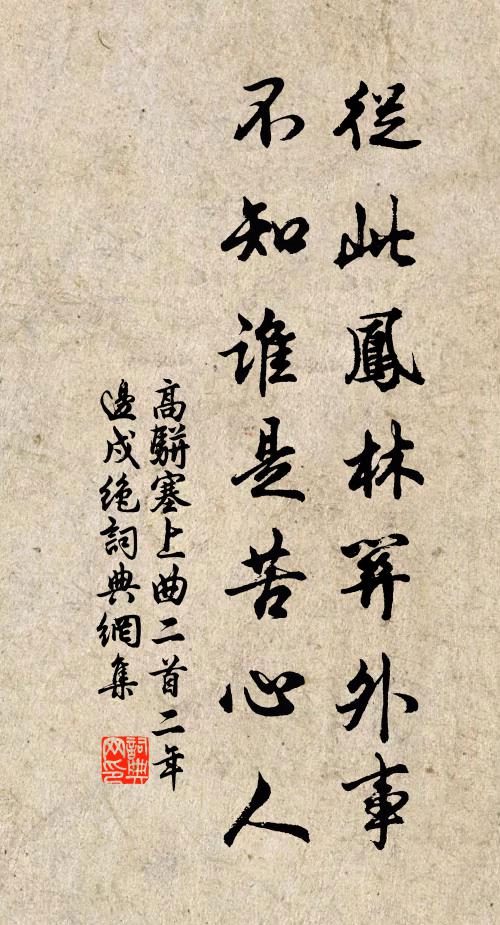 從此鳳林關外事
不知誰是苦心人
高駢塞上曲二首二年
邊戍絶詞典網集
詞典
网印